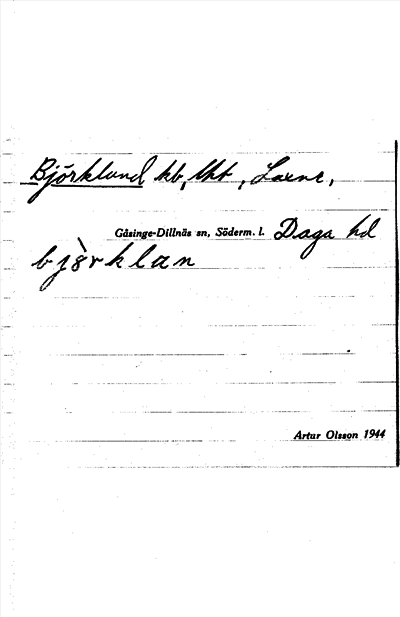 Björklund hb, lht, Laxne,
Gåsinge-Dillnäs sn, Söderm. l. Daga hd
bjòrklan
Artur Olsson 1944